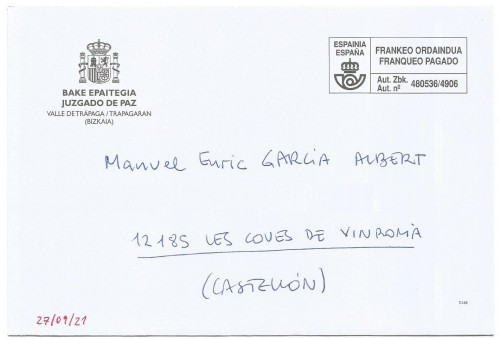 ESPAINIA
ESPAÑA
FRANKEO ORDAINDUA
FRANQUEO PAGADO
Aut. Zbk.
Aut. nº
480536/4906
BAKE EPAITEGIA
JUZGADO DE PAZ
VALLE DE TRÁPAGA / TRAPAGARAN
(BIZKAIA)
Manuel Enric GARCIA ALBERT
12185 LES COVES DE VINROMÀ
(CASTELLÓN)
27/09/21